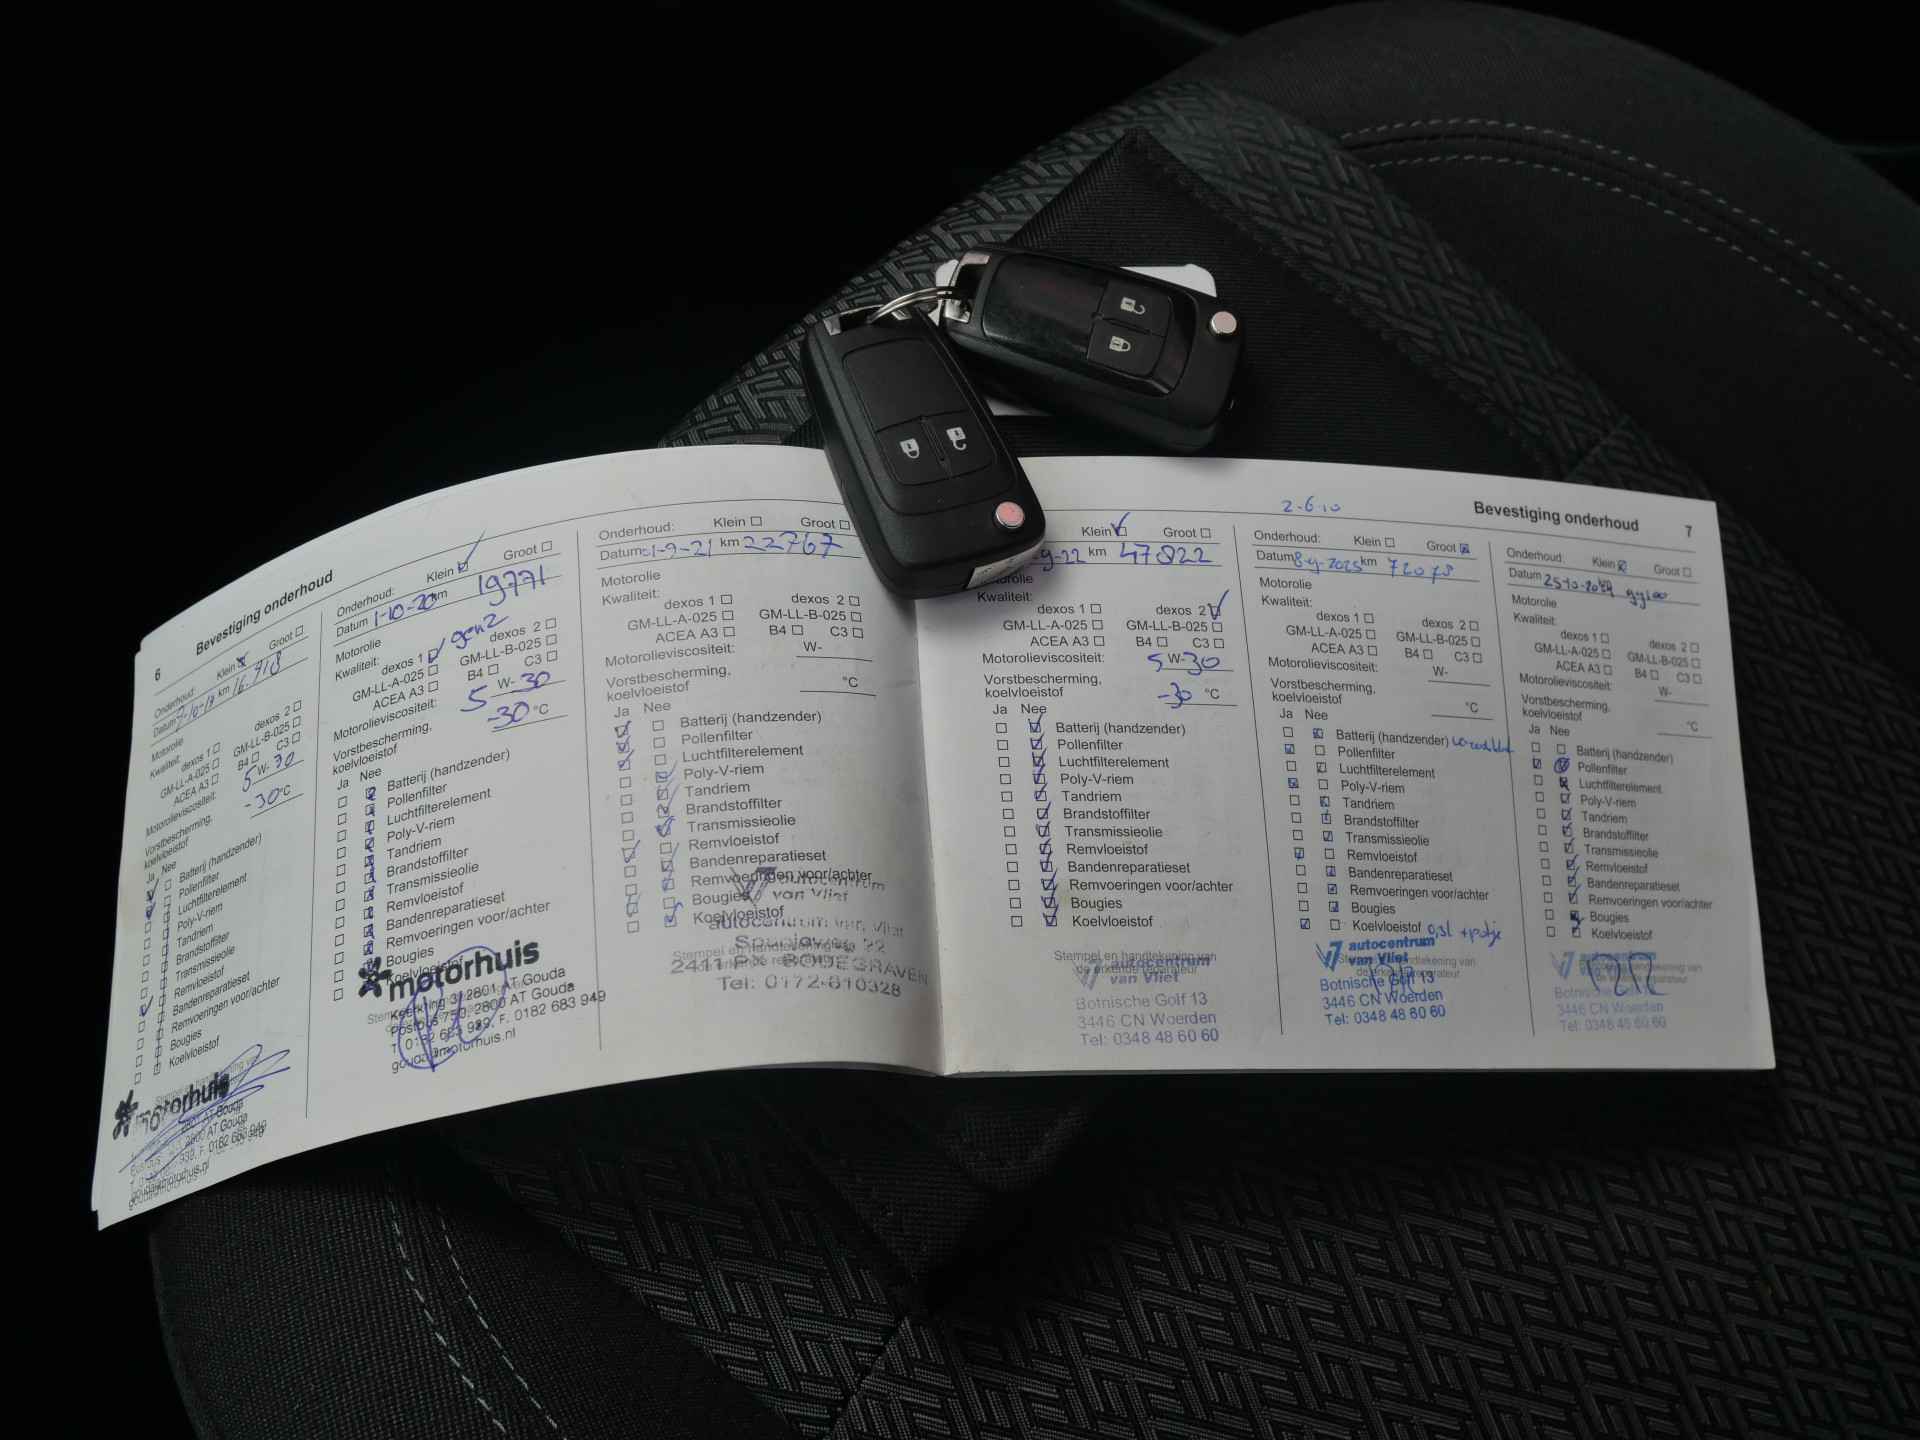 6
Bevestiging onderhoud
Onderhoud: Klein Groot
Datum km 16.918
Motorolie
Kwaliteit: dexos 1 dexos 2
GM-LL-A-025 GM-LL-B-025
ACEA A3 B4 C3
Motorolieviscositeit: 5 W- 30
Vorstbescherming,
koelvloeistof -30 °C
Ja Nee
Batterij (handzender)
Pollenfilter
Luchtfilterelement
Poly-V-riem
Tandriem
Brandstoffilter
Transmissieolie
Remvloeistof
Bandenreparatieset
Remvoeringen voor/achter
Bougies
Koelvloeistof
motorhuis
2800 AT Gouda
gouda@motorhuis.nl
Onderhoud: Klein Groot
Datum 1-10-20 km 19771
Motorolie
Kwaliteit: dexos 1 gen2 dexos 2
GM-LL-A-025 GM-LL-B-025
ACEA A3 B4 C3
Motorolieviscositeit: 5 W- 30
Vorstbescherming,
koelvloeistof -30 °C
Ja Nee
Batterij (handzender)
Pollenfilter
Luchtfilterelement
Poly-V-riem
Tandriem
Brandstoffilter
Transmissieolie
Remvloeistof
Bandenreparatieset
Remvoeringen voor/achter
Bougies
Koelvloeistof
motorhuis
2801 AT Gouda
2800 AT Gouda
F. 0182 683 949
gouda@motorhuis.nl
Onderhoud: Klein Groot
Datum 1-9-21 km 22767
Motorolie
Kwaliteit:
dexos 1 dexos 2
GM-LL-A-025 GM-LL-B-025
ACEA A3 B4 C3
Motorolieviscositeit: W-
Vorstbescherming,
koelvloeistof °C
Ja Nee
Batterij (handzender)
Pollenfilter
Luchtfilterelement
Poly-V-riem
Tandriem
Brandstoffilter
Transmissieolie
Remvloeistof
Bandenreparatieset
Remvoeringen voor/achter
Bougies
Koelvloeistof
autocentrum
van Vliet
autocentrum van Vliet
22
2411 BODEGRAVEN
Tel: 0172-610328
Klein Groot
-9-22 km 47822
Kwaliteit:
dexos 1 dexos 2
GM-LL-A-025 GM-LL-B-025
ACEA A3 B4 C3
Motorolieviscositeit: 5 W- 30
Vorstbescherming,
koelvloeistof -30 °C
Ja Nee
Batterij (handzender)
Pollenfilter
Luchtfilterelement
Poly-V-riem
Tandriem
Brandstoffilter
Transmissieolie
Remvloeistof
Bandenreparatieset
Remvoeringen voor/achter
Bougies
Koelvloeistof
Stempel en handtekening van
de erkende reparateur
autocentrum
van Vliet
Botnische Golf 13
3446 CN Woerden
Tel: 0348 48 60 60
2-6-10
Bevestiging onderhoud
7
Onderhoud: Klein Groot
Datum km
Motorolie
Kwaliteit:
dexos 1 dexos 2
GM-LL-A-025 GM-LL-B-025
ACEA A3 B4 C3
Motorolieviscositeit: W-
Vorstbescherming,
koelvloeistof °C
Ja Nee
Batterij (handzender)
Pollenfilter
Luchtfilterelement
Poly-V-riem
Tandriem
Brandstoffilter
Transmissieolie
Remvloeistof
Bandenreparatieset
Remvoeringen voor/achter
Bougies
Koelvloeistof 0,3l + potje
autocentrum
van Vliet
Botnische Golf 13
3446 CN Woerden
Tel: 0348 48 60 60
Onderhoud: Klein Groot
Datum
Motorolie
Kwaliteit:
dexos 1 dexos 2
GM-LL-A-025 GM-LL-B-025
ACEA A3 B4 C3
Motorolieviscositeit: W-
Vorstbescherming,
koelvloeistof °C
Ja Nee
Batterij (handzender)
Pollenfilter
Luchtfilterelement
Poly-V-riem
Tandriem
Brandstoffilter
Transmissieolie
Remvloeistof
Bandenreparatieset
Remvoeringen voor/achter
Bougies
Koelvloeistof
autocentrum
3446 CN Woerden
Tel: 0348 48 60 60